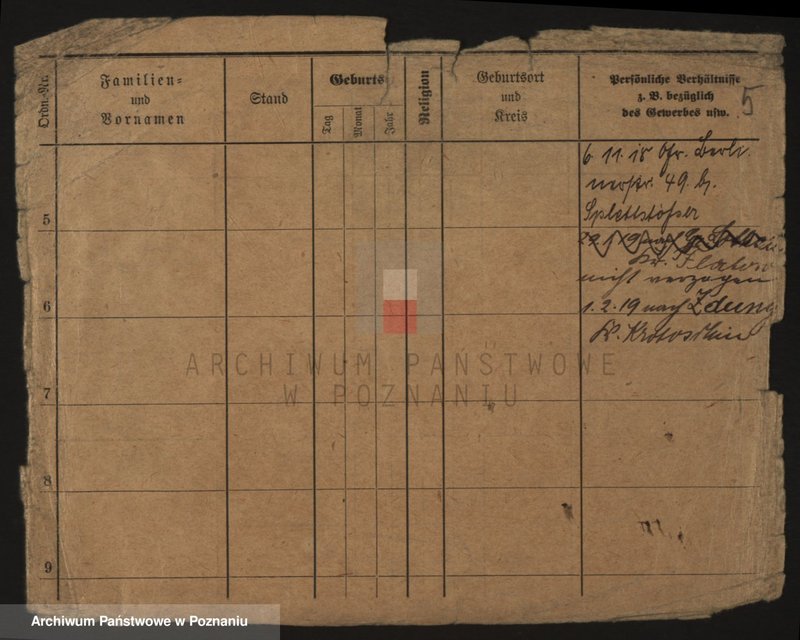 Ordn.-Nr.
Familien-
und
Vornamen
Stand
Geburts
Tag
Monat
Jahr
Religion
Geburtsort
und
Kreis
Persönliche Verhältnisse
z. B. bezüglich
des Gewerbes usw.
5
6. 11. 18 Ofr. Berli-
nerstr. 49. b.
Splettstößer
5
29. 1. 19 nach
Kr. Flatow
nicht verzogen
6
1. 2. 19 nach Zduny
Kr. Krotoschin
ARCHIWUM PAŃSTWOWE
W POZNANIU
7
8
9
Archiwum Państwowe w Poznaniu